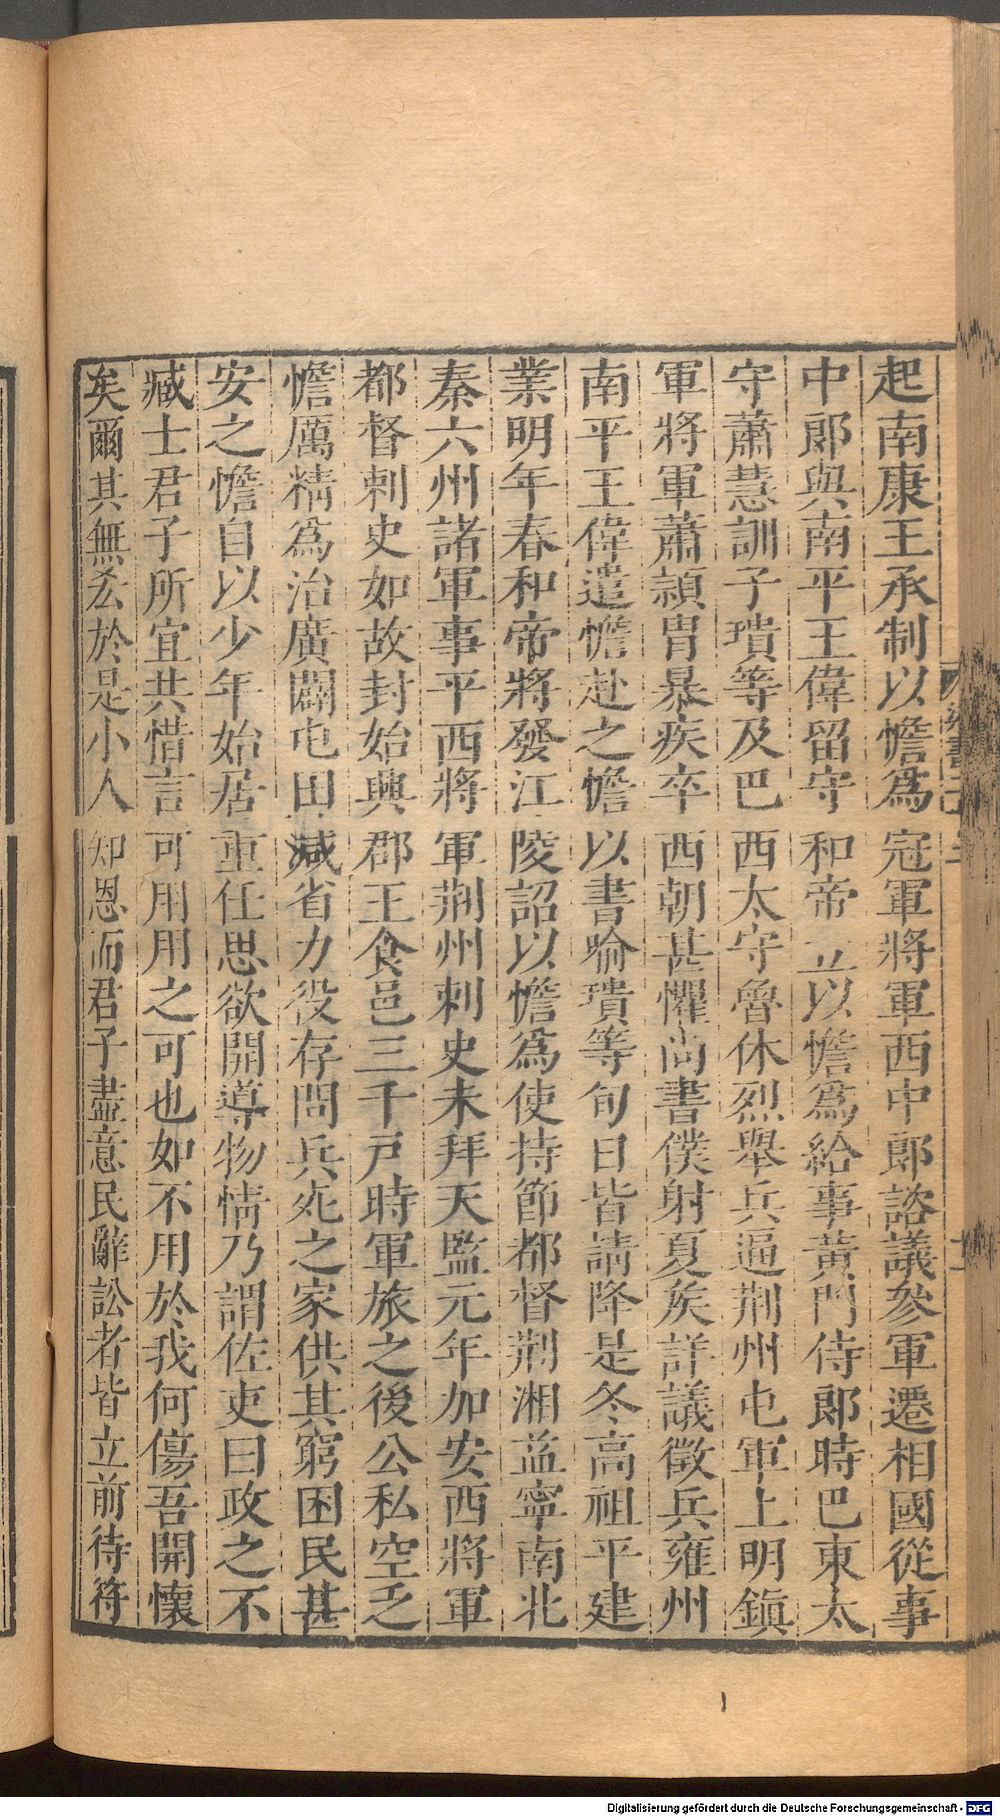 起南康王承制以憺爲冠軍將軍西中郞諮議參軍遷相國從事
中郞與南平王偉留守和帝立以憺爲給事黃門侍郞時巴東太
守蕭慧訓子璝等及巴西太守魯休烈舉兵逼荆州屯軍上明鎭
軍將軍蕭頴胄暴疾卒西朝甚懼尚書僕射夏矦詳議徵兵雍州
南平王偉遣憺赴之憺以書喻璝等旬日皆請降是冬高祖平建
業明年春和帝將發江陵詔以憺爲使持節都督荆湘益寧南北
秦六州諸軍事平西將軍荆州刺史未拜天監元年加安西將軍
都督刺史如故封始興郡王食邑三千戸時軍旅之後公私空乏
憺厲精爲治廣闢屯田減省力役存問兵死之家供其窮困民甚
安之憺自以少年始居重任思欲開導物情乃謂佐吏曰政之不
臧士君子所宜共惜言可用用之可也如不用於我何傷吾開懷
矣爾其無𠫤於是小人知恩而君子盡意民辭訟者皆立前待符
Digitalisierung gefördert durch die Deutsche Forschungsgemeinschaft - DFG